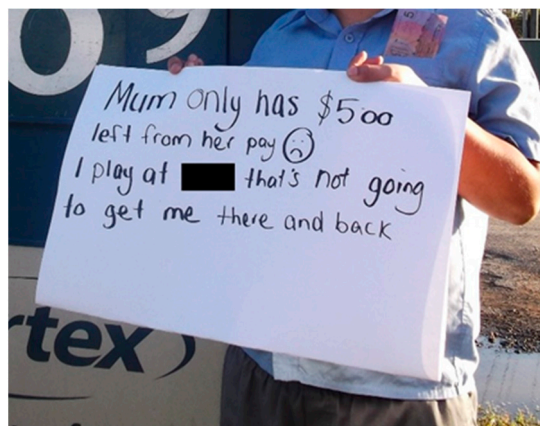 69
Mum only has $5.00
left from her pay
I play at that's not going
to get me there and back
tex
5